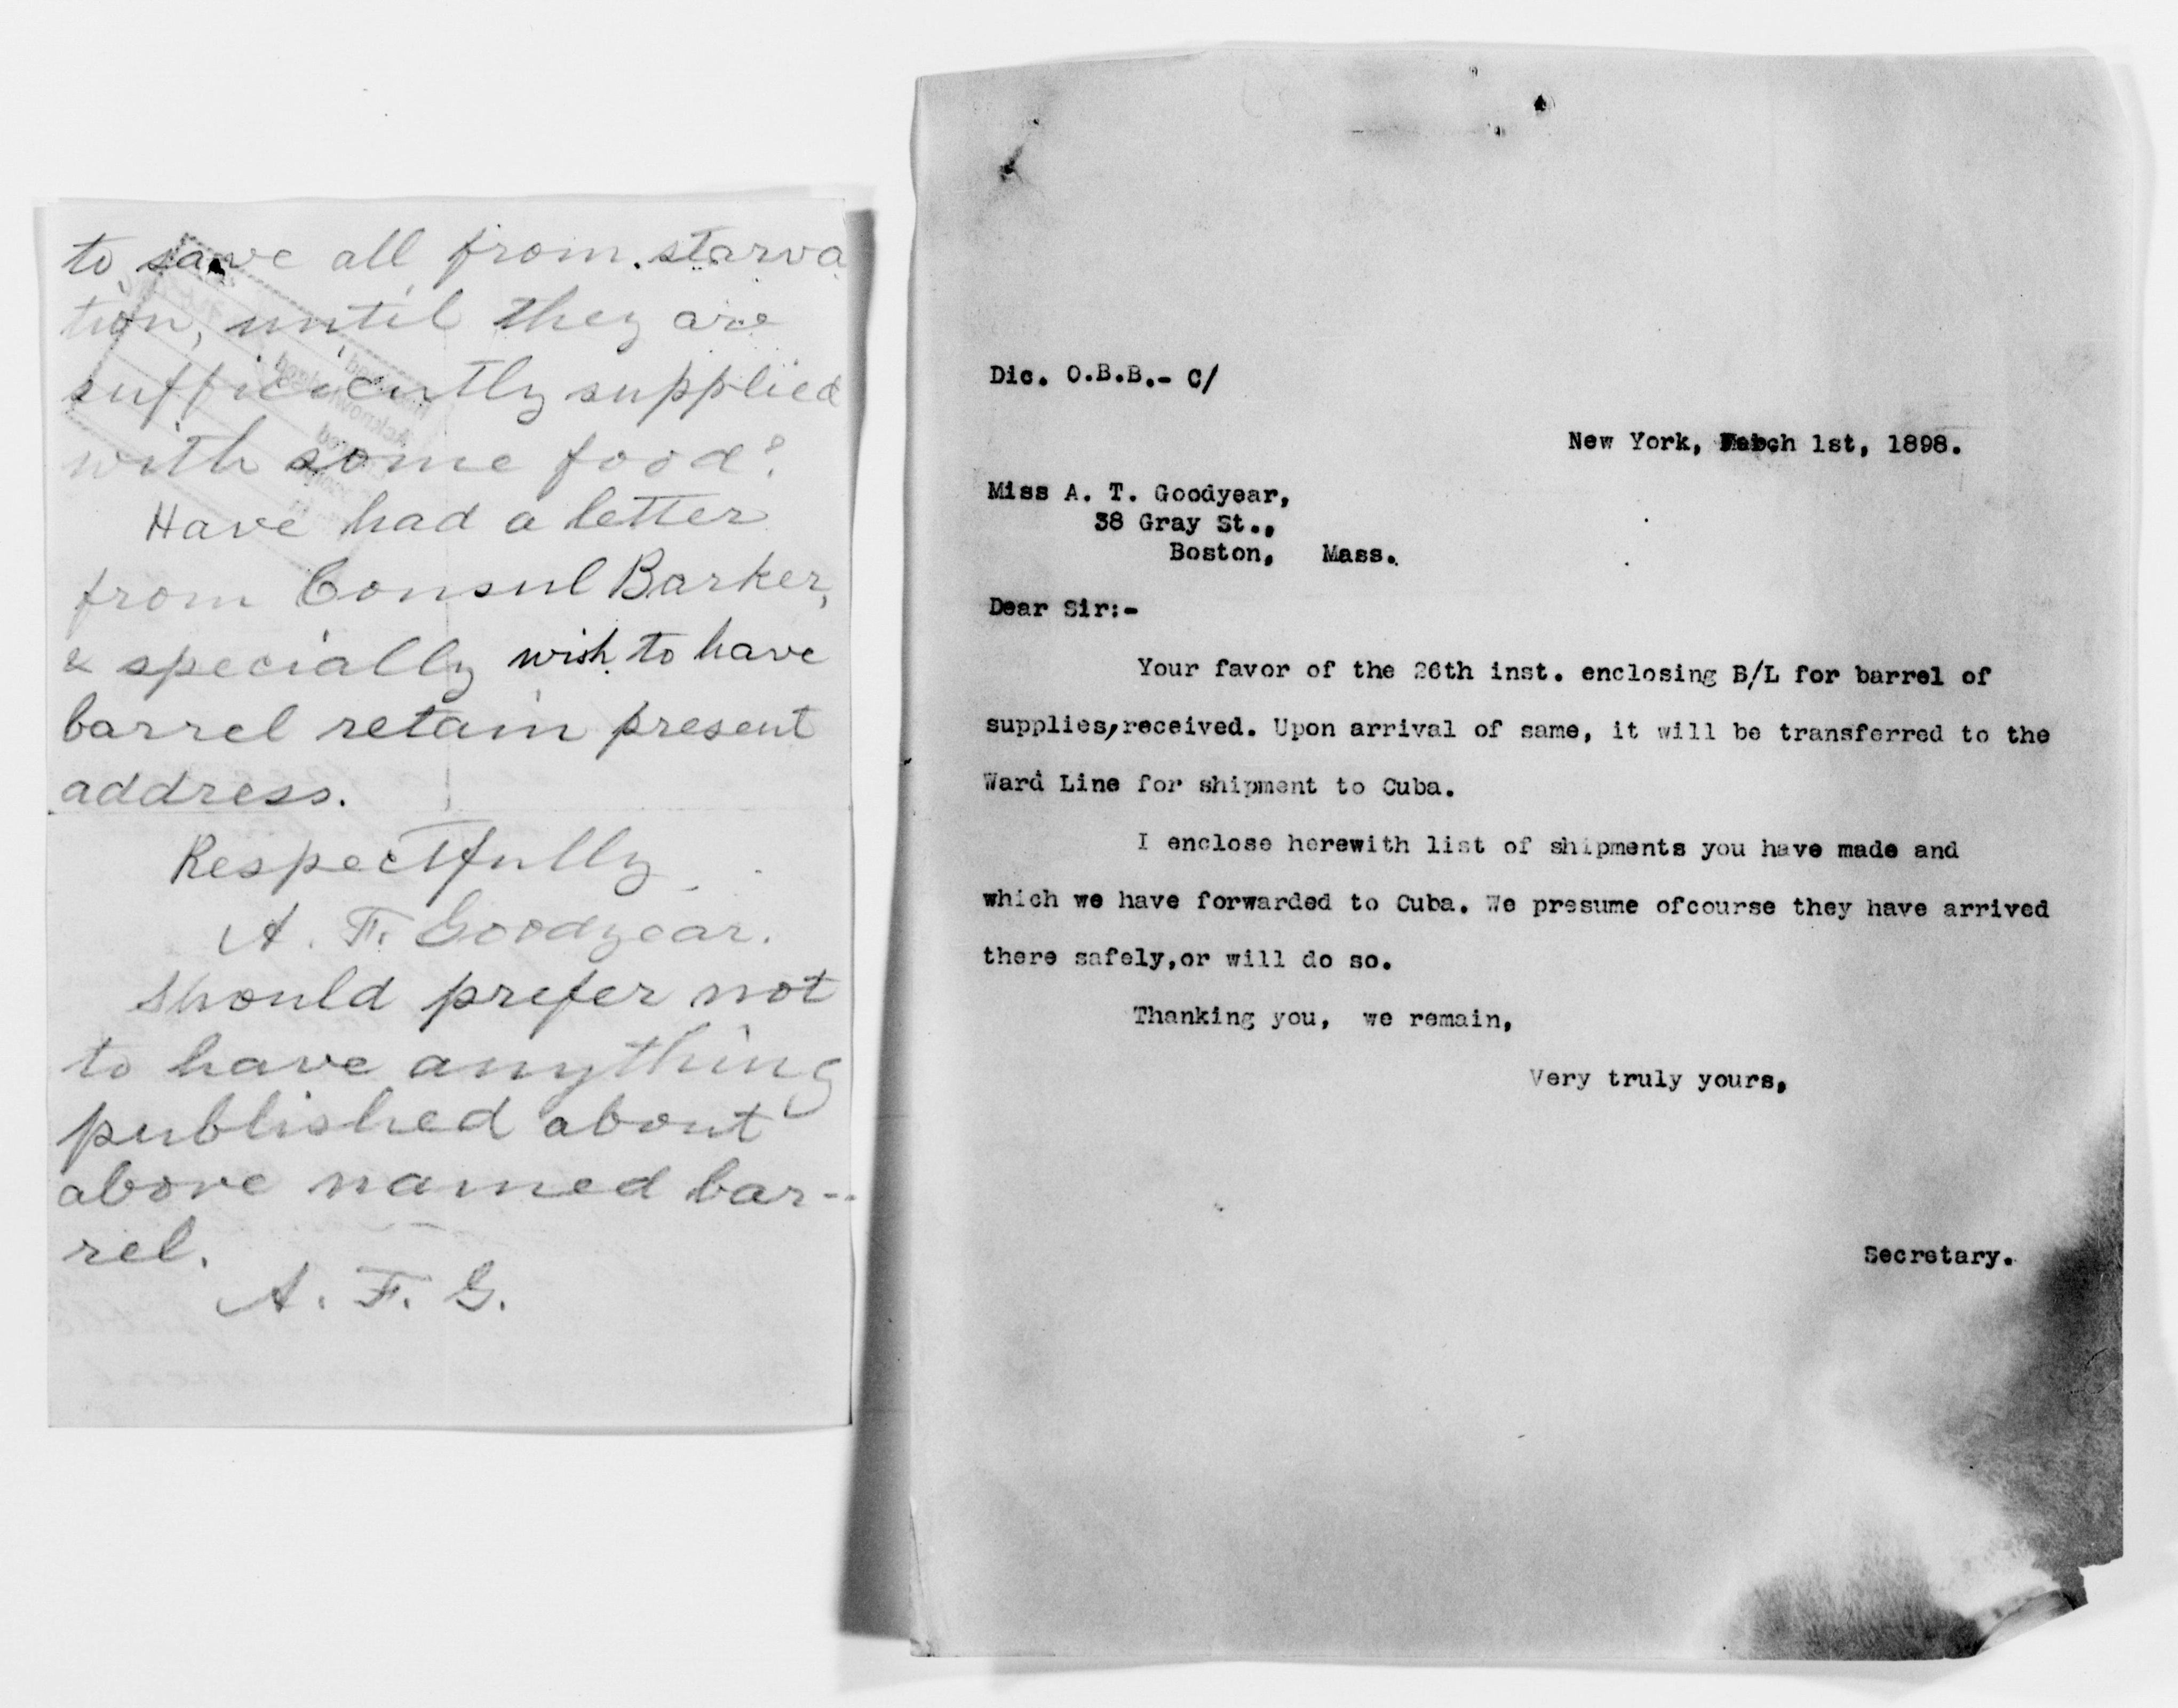 to save all from starva
tion, until they are
sufficiently supplied
with some food?
Have had a letter
from Consul Barker,
& specially wish to have
barrel retain present
address.
Respectfully
A. F. Goodyear.
Should prefer not
to have anything
published about
above named bar-
rel.
A. F. G.
Dic. O.B.B.- C/
New York, March 1st, 1898.
Miss A. T. Goodyear,
38 Gray St.,
Boston, Mass.
Dear Sir:-
Your favor of the 26th inst. enclosing B/L for barrel of
supplies, received. Upon arrival of same, it will be transferred to the
Ward Line for shipment to Cuba.
I enclose herewith list of shipments you have made and
which we have forwarded to Cuba. We presume ofcourse they have arrived
there safely,or will do so.
Thanking you, we remain,
Very truly yours,
Secretary.